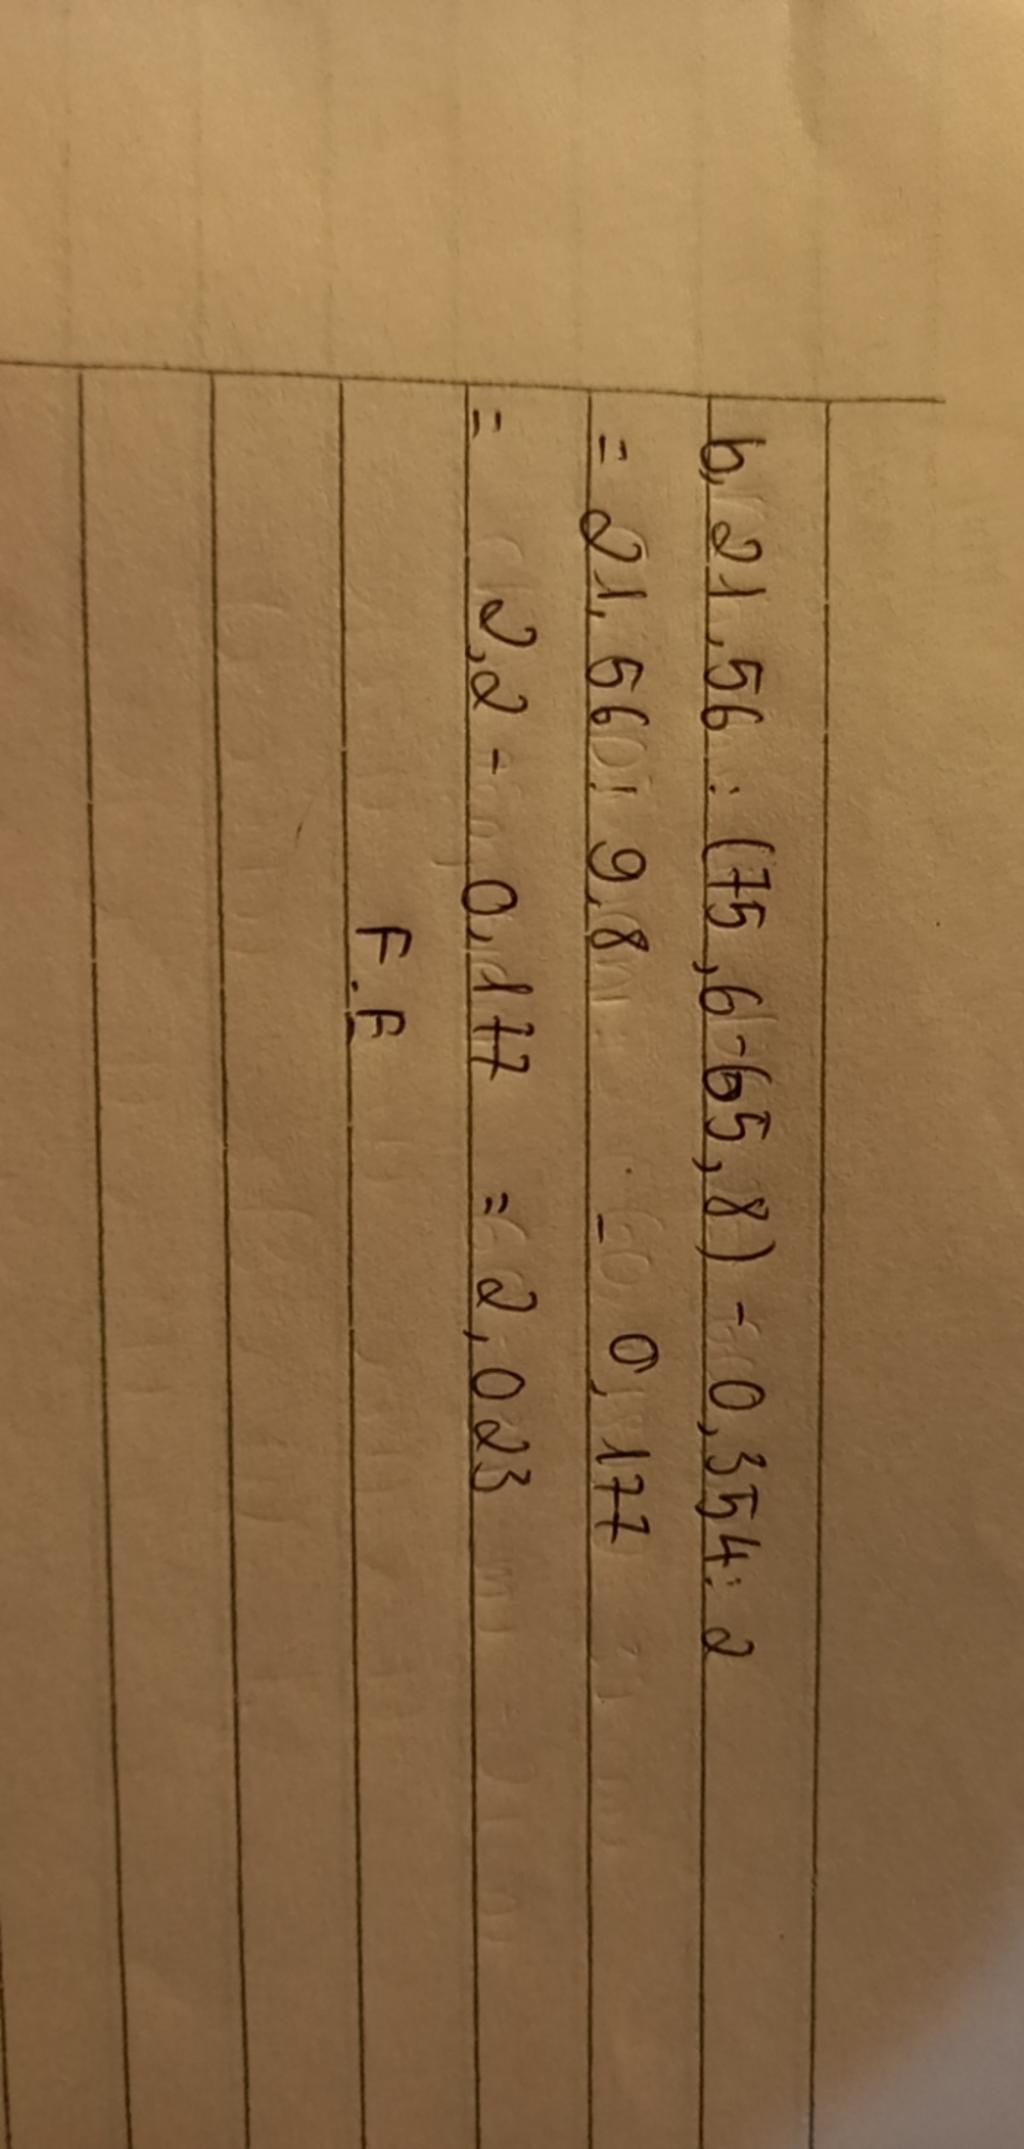 b, 21,56 : (75,6-65,8) - 0,354: 2
= 21,56 : 9,8 - 0,177
= 2,2 - 0,177 = 2,023
F.F